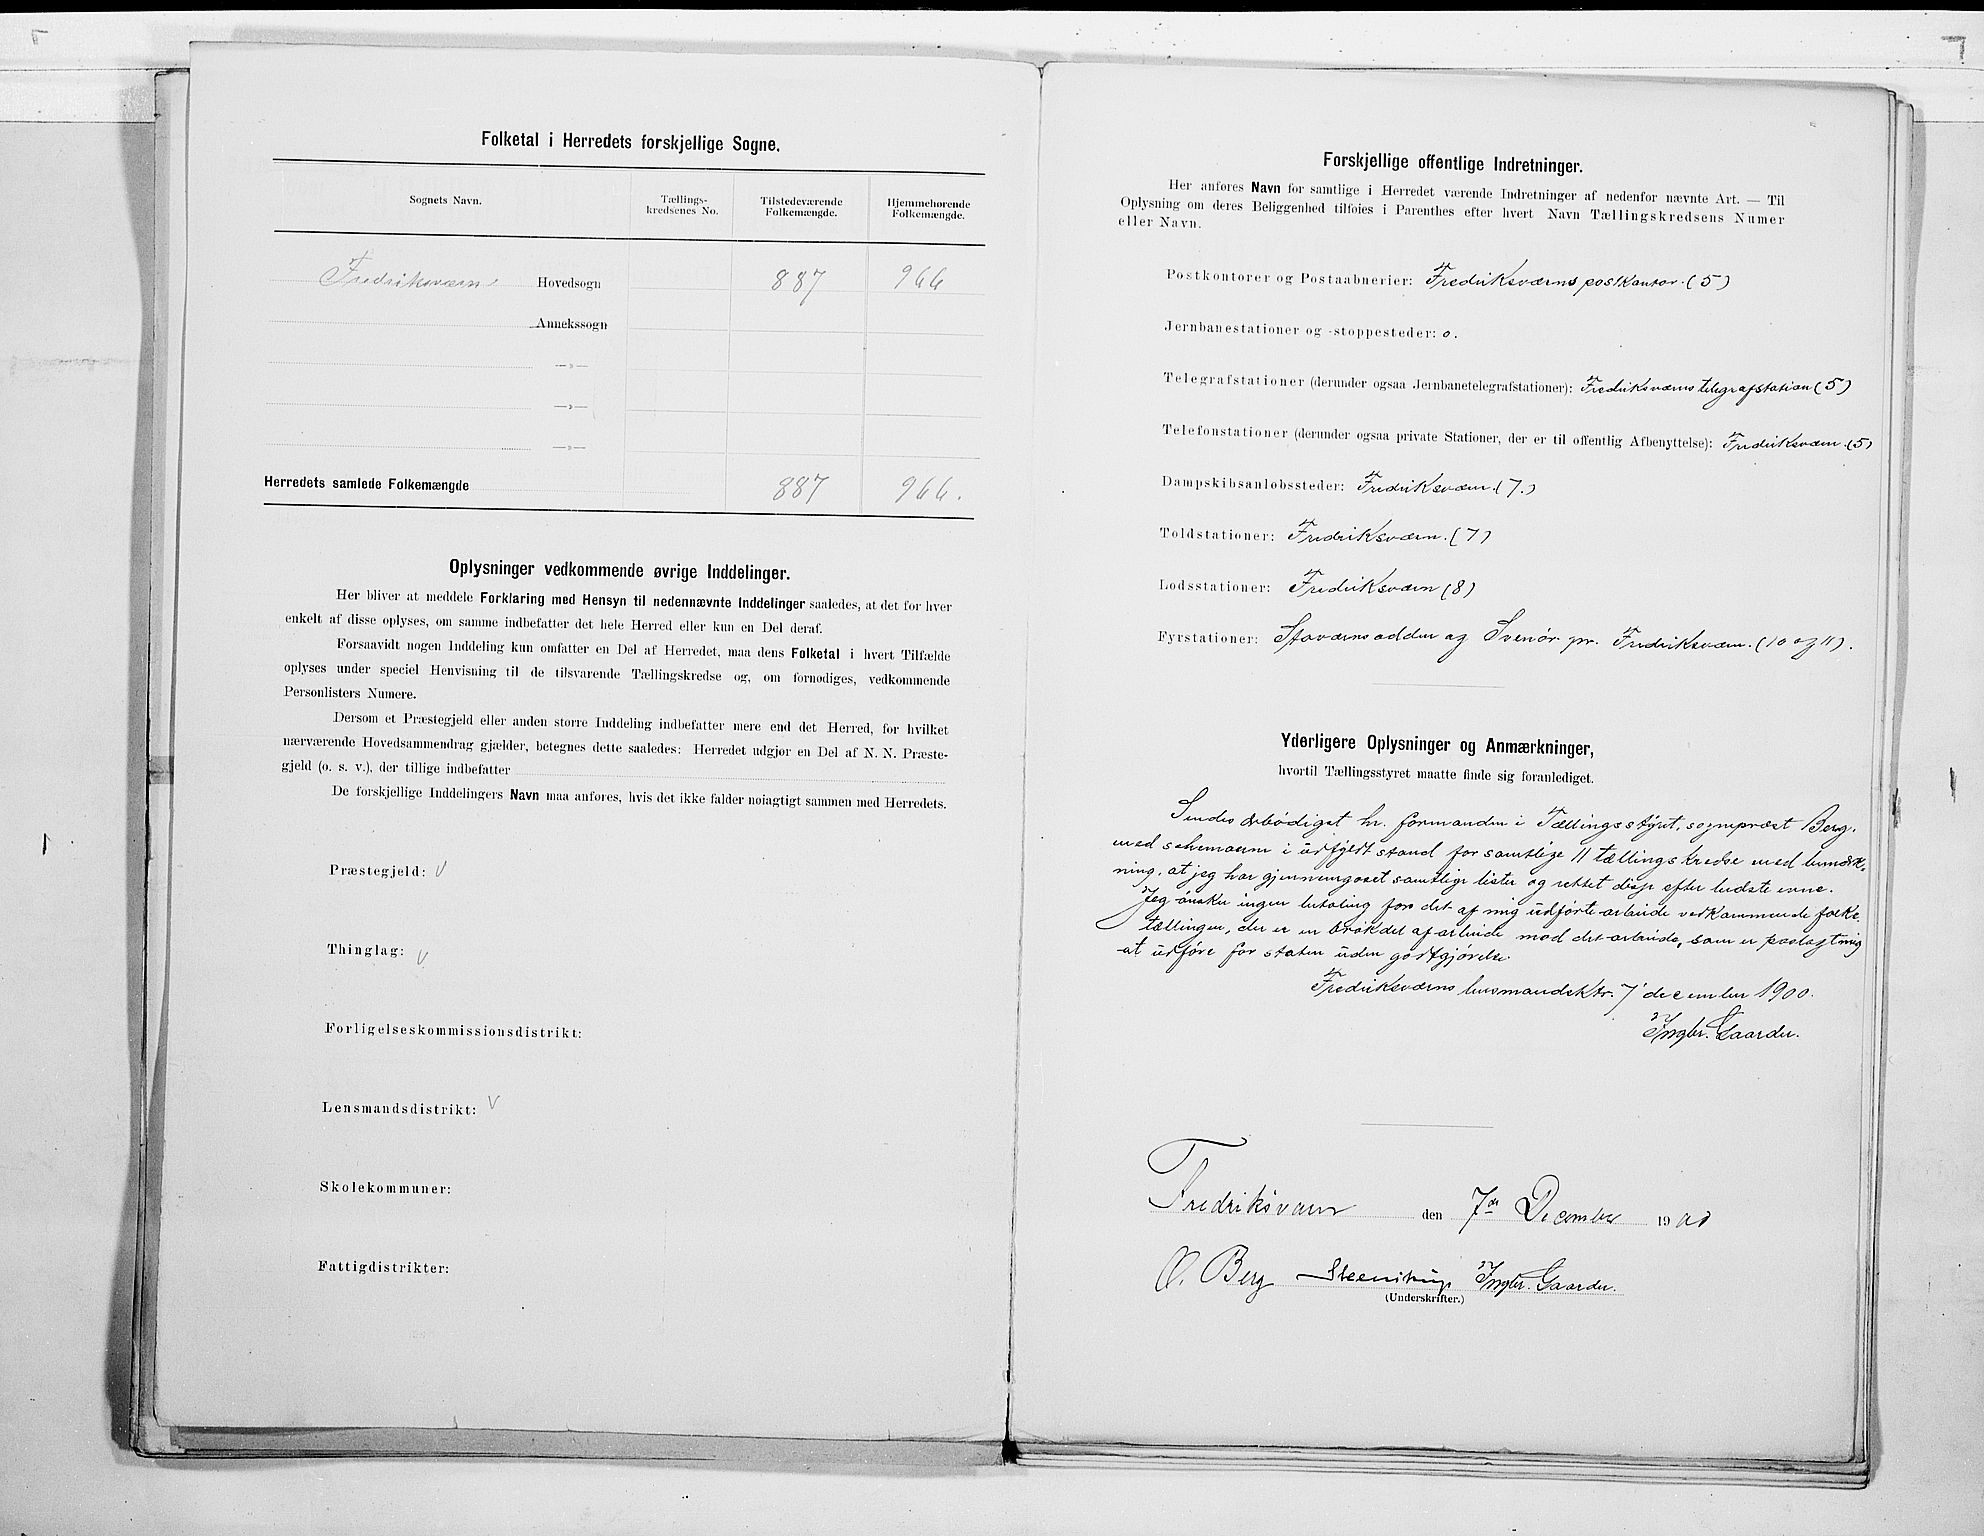 Folketal i Herredets forskjellige Sogne.
Sognets Navn.
Tællings-
kredsenes No.
Tilstedeværende
Folkemængde.
Hjemmehørende
Folkemængde.
Fredriksværn Hovedsogn 887 966
Annekssogn
—»—
—»—
—»—
Herredets samlede Folkemængde 887 966.
Oplysninger vedkommende øvrige Inddelinger.
Her bliver at meddele Forklaring med Hensyn til nedennævnte Inddelinger saaledes, at det for hver
enkelt af disse oplyses, om samme indbefatter det hele Herred eller kun en Del deraf.
Forsaavidt nogen Inddeling kun omfatter en Del af Herredet, maa dens Folketal i hvert Tilfælde
oplyses under speciel Henvisning til de tilsvarende Tællingskredse og, om fornødiges, vedkommende
Personlisters Numere.
Dersom et Præstegjeld eller anden større Inddeling indbefatter mere end det Herred, for hvilket
nærværende Hovedsammendrag gjælder, betegnes dette saaledes: Herredet udgjør en Del af N. N. Præste-
gjeld (o. s. v.), der tillige indbefatter
De forskjellige Inddelingers Navn maa anføres, hvis det ikke falder nøiagtigt sammen med Herredets.
Præstegjeld: V
Thinglag: V
Forligelseskommissionsdistrikt:
Lensmandsdistrikt: V
Skolekommuner:
Fattigdistrikter:
Forskjellige offentlige Indretninger.
Her anføres Navn for samtlige i Herredet værende Indretninger af nedenfor nævnte Art. — Til
Oplysning om deres Beliggenhed tilføies i Parenthes efter hvert Navn Tællingskredsens Numer
eller Navn.
Postkontorer og Postaabnerier: Fredriksværns postkontor. (5)
Jernbanestationer og -stoppesteder: o.
Telegrafstationer (derunder ogsaa Jernbanetelegrafstationer): Fredriksværns telegrafstation (5)
Telefonstationer (derunder ogsaa private Stationer, der er til offentlig Afbenyttelse): Fredriksværn. (5)
Dampskibsanløbssteder: Fredriksværn. (7.)
Toldstationer: Fredriksværn. (7)
Lodsstationer: Fredriksværn (8)
Fyrstationer: Staværnsodden og Svenør pr. Fredriksværn. (10 og 11).
Yderligere Oplysninger og Anmærkninger,
hvortil Tællingsstyret maatte finde sig foranlediget.
Sendes ærbødigst hr. formanden i Tællingsstyret, sogneprest Berg.
med schemaerne i udfyldt stand for samtlige 11 tællingskredse med bemærk-
ning, at jeg har gjennemgaaet samtlige lister og rettet disse efter bedste evne.
Jeg ønsker ingen betaling for det af mig udførte arbeide vedkommende folke-
tællingen, der er en brøkdel af arbeide mod det arbeide, som er paalagt mig
at udføre for staten uden godtgjørelse.
Fredriksværns lensmandsktr. 7' december 1900.
Ingbr. Gaarder.
Fredriksværn den 7de December 1900
O. Berg Steenstrup Ingbr. Gaarder.
(Underskrifter.)